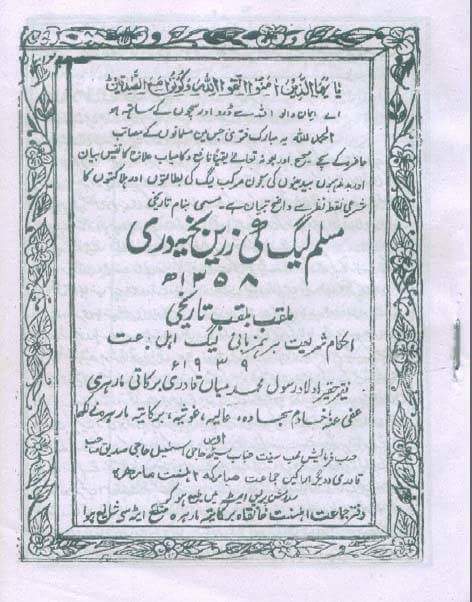 یا یھا الذین اٰمنوا اتقوا اللہ وکونوا مع الصّٰدقین
اے ایمان والو اللہ سے ڈرو اور سچوں کے ساتھ ہو
الحمد للہ یہ مبارک فتویٰ جس میں مسلمانوں کے مصائب
حاضرہ کے سچے صحیح اور بعونہ تعالےٰ یقیناً نافع و کامیاب علاج کا نفیس بیان
اور بدمذہبوں بیدینوں کی معجون مرکب لیگ کی بطالتوں اور ہلاکتوں کا
شرعی نقطۂ نظر سے واضح تبیان ہے۔ مسمیٰ بنام تاریخی
مسلم لیگ کی زرین بخیہ دری
۱۳۵۸ھ
ملقب بلقب تاریخی
احکام شریعت بر لیگ اہل بدعت
۱۹۳۹ء
فقیر حقیر اولاد رسول محمد میاں قادری برکاتی مارہری
عفی عنہ خادم سجادہ، عالیہ، غوثیہ، برکاتیہ مارہرہ نے لکھا
حسب فرمائش محب سنت جناب سیٹھ حاجی اسمٰعیل حاجی صدیق صاحب
قادری و دیگر اراکین جماعت مبارکہ اہلسنت مارہرہ
پریس ایٹہ میں طبع ہو کر
دفتر جماعت اہلسنت خانقاہ برکاتیہ مارہرہ ضلع ایٹہ سے شائع ہوا